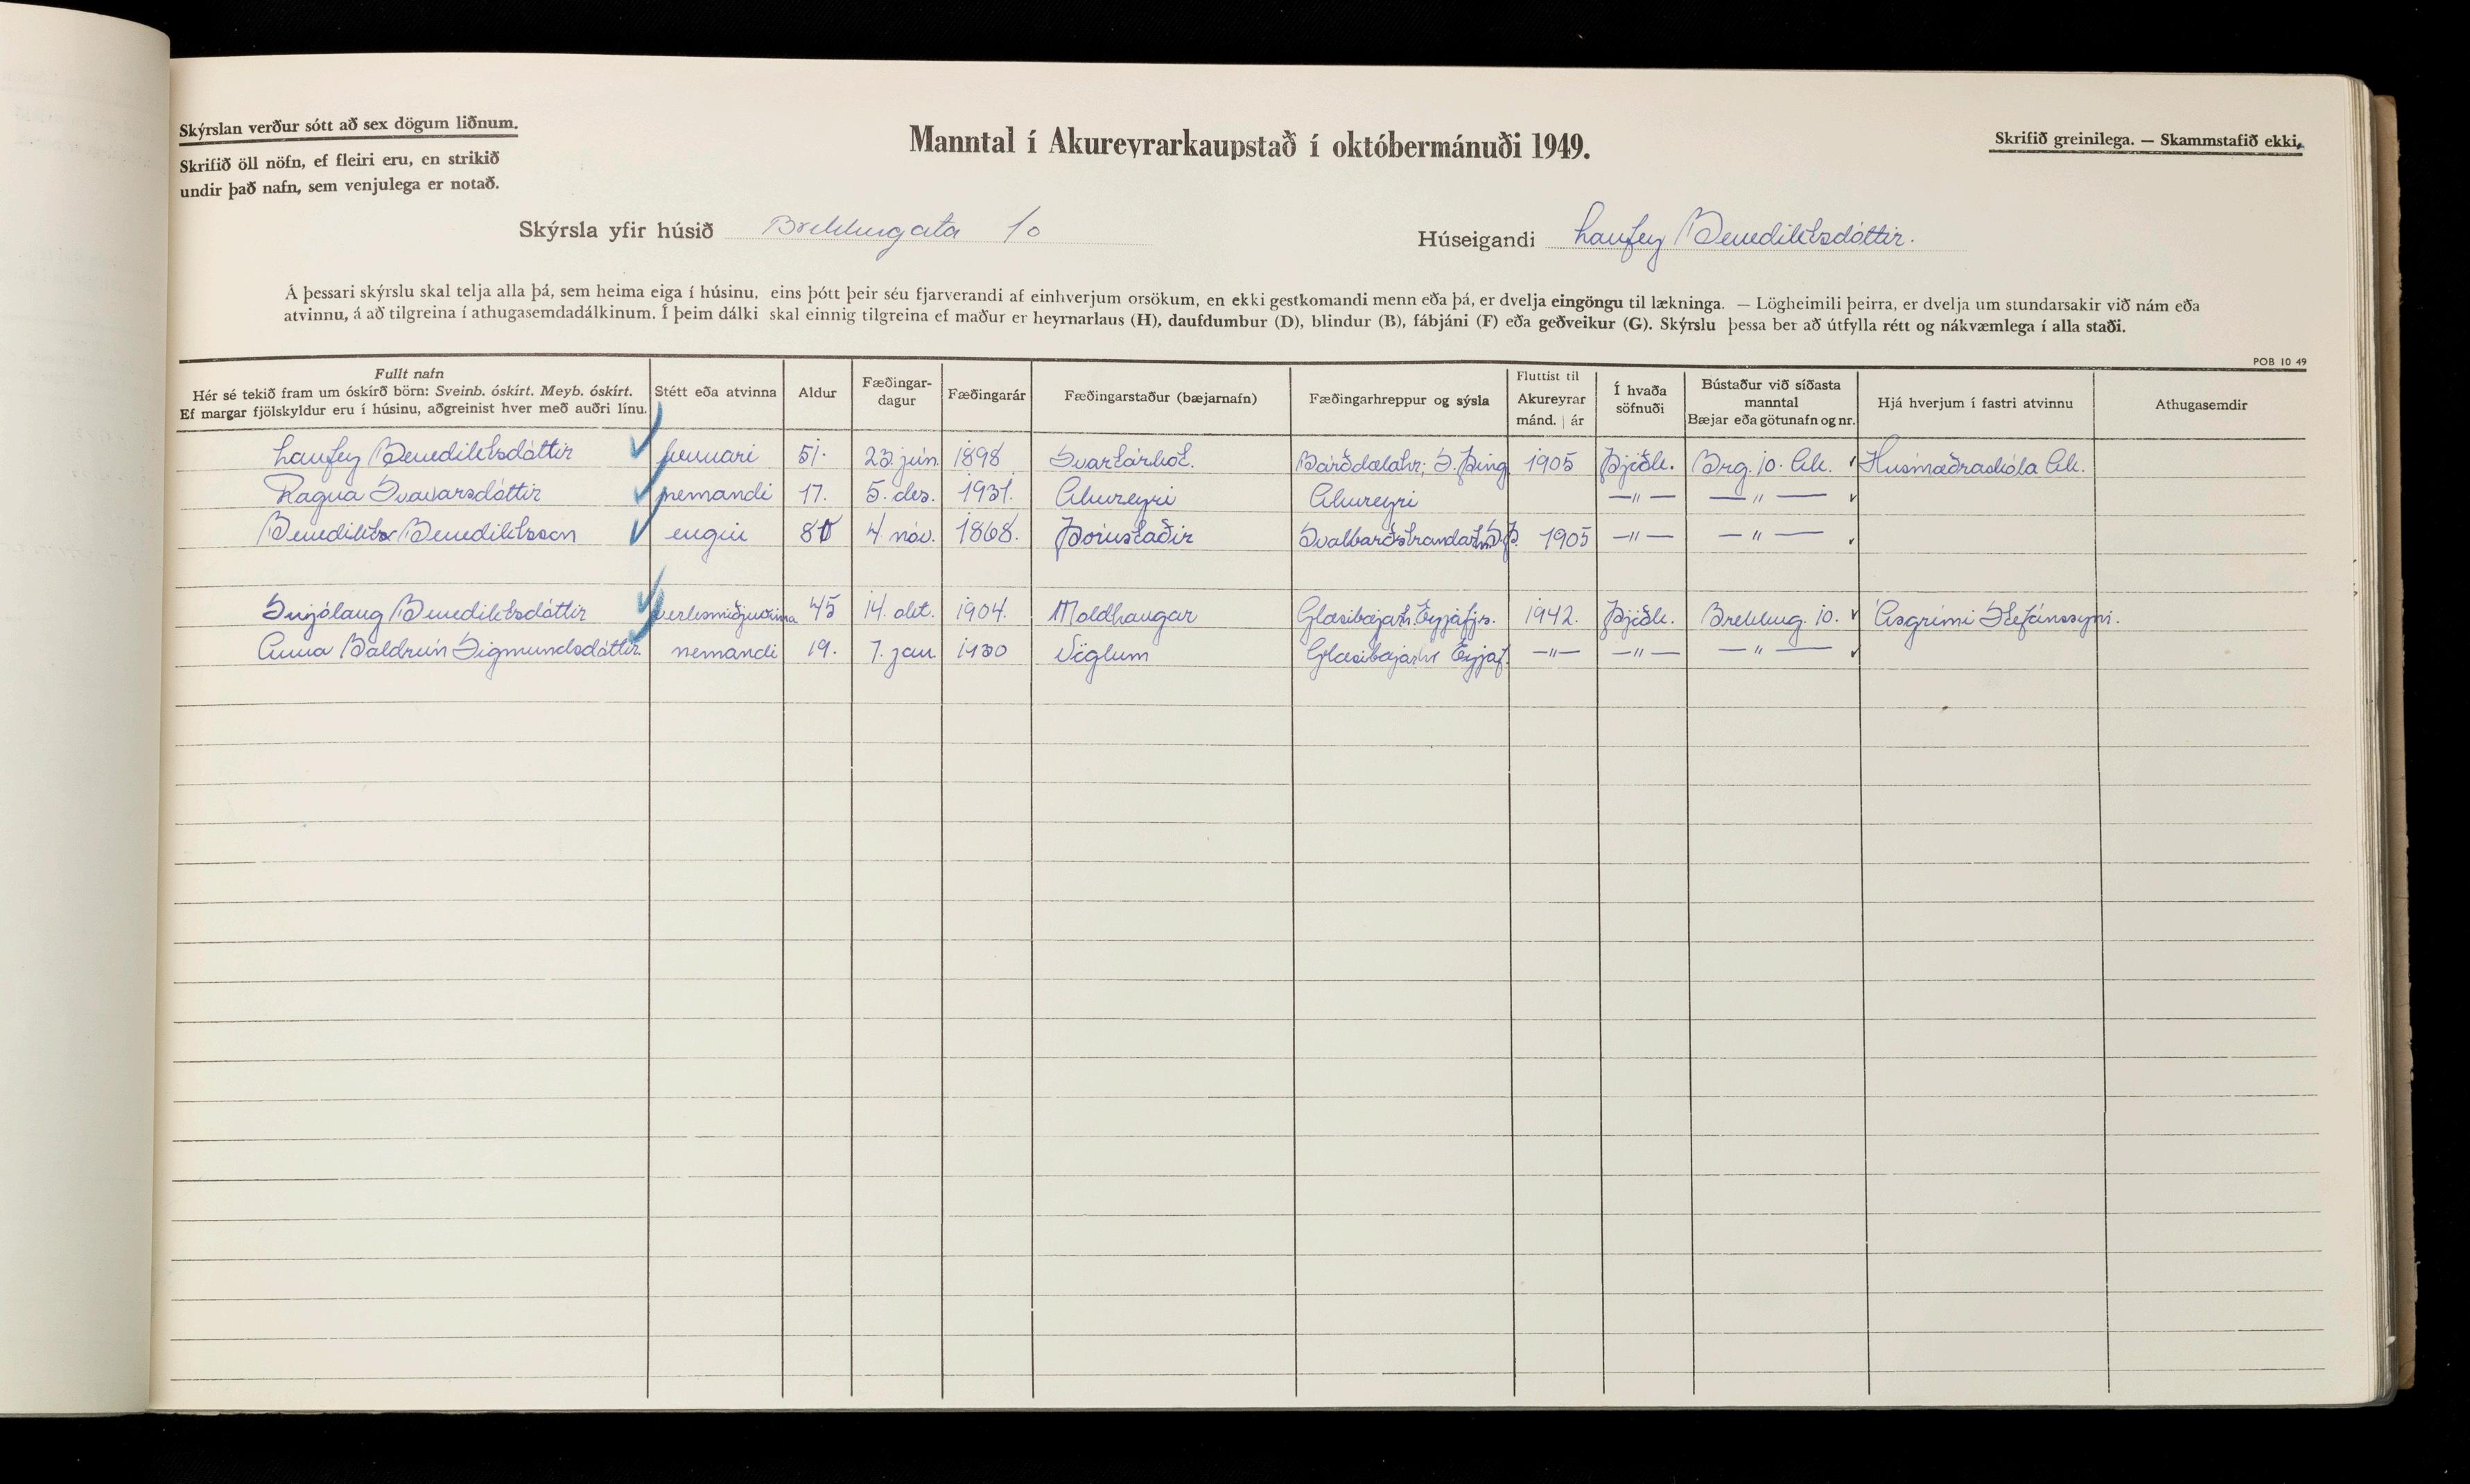 Skýrslan verður sótt að sex dögum liðnum.
Skrifið öll nöfn, ef fleiri eru, en strikið
undir það nafn, sem venjulega er notað.
Manntal í Akureyrarkaupstað í októbermánuði 1949.
Skrifið greinilega. — Skammstafið ekki.
Skýrsla yfir húsið Brekkugata 10
Húseigandi Laufey Benediktsdóttir.
Á þessari skýrslu skal telja alla þá, sem heima eiga í húsinu, eins þótt þeir séu fjarverandi af einhverjum orsökum, en ekki gestkomandi menn eða þá, er dvelja eingöngu til lækninga. — Lögheimili þeirra, er dvelja um stundarsakir við nám eða
atvinnu, á að tilgreina í athugasemdadálkinum. Í þeim dálki skal einnig tilgreina ef maður er heyrnarlaus (H), daufdumbur (D), blindur (B), fábjáni (F) eða geðveikur (G). Skýrslu þessa ber að útfylla rétt og nákvæmlega í alla staði.
POB 10 49
Fullt nafn
Hér sé tekið fram um óskírð börn: Sveinb. óskírt. Meyb. óskírt.
Ef margar fjölskyldur eru í húsinu, aðgreinist hver með auðri línu.
Stétt eða atvinna
Aldur
Fæðingar-
dagur
Fæðingarár
Fæðingarstaður (bæjarnafn)
Fæðingarhreppur og sýsla
Fluttist til
Akureyrar
mánd. | ár
Í hvaða
söfnuði
Bústaður við síðasta
manntal
Bæjar eða götunafn og nr.
Hjá hverjum í fastri atvinnu
Athugasemdir
Laufey Benediktsdóttir kennari 51. 23. jún. 1898 Svartárkot. Bárðdælahr; S. Þing 1905 Þjóðk. Brg. 10. Ak. Húsmæðraskóla Ak.
Ragna Svavarsdóttir nemandi 17. 5. des. 1931. Akureyri Akureyri —"— —"—
Benedikt Benediktsson engin 80 4. nóv. 1868. Þórustaðir Svalbarðstrandarh. S.Þ. 1905 —"— —"—
Snjólaug Benediktsdóttir verksmiðjuvinna 45 14. okt. 1904. Moldhaugar Glæsibæjarh. Eyjafjs. 1942. Þjóðk. Brekkug. 10. Ásgrími Stefánssyni.
Anna Baldrún Sigmundsdóttir nemandi 19. 7. jan 1930 Vöglum Glæsibæjarhr Eyjaf. —"— —"— —"—